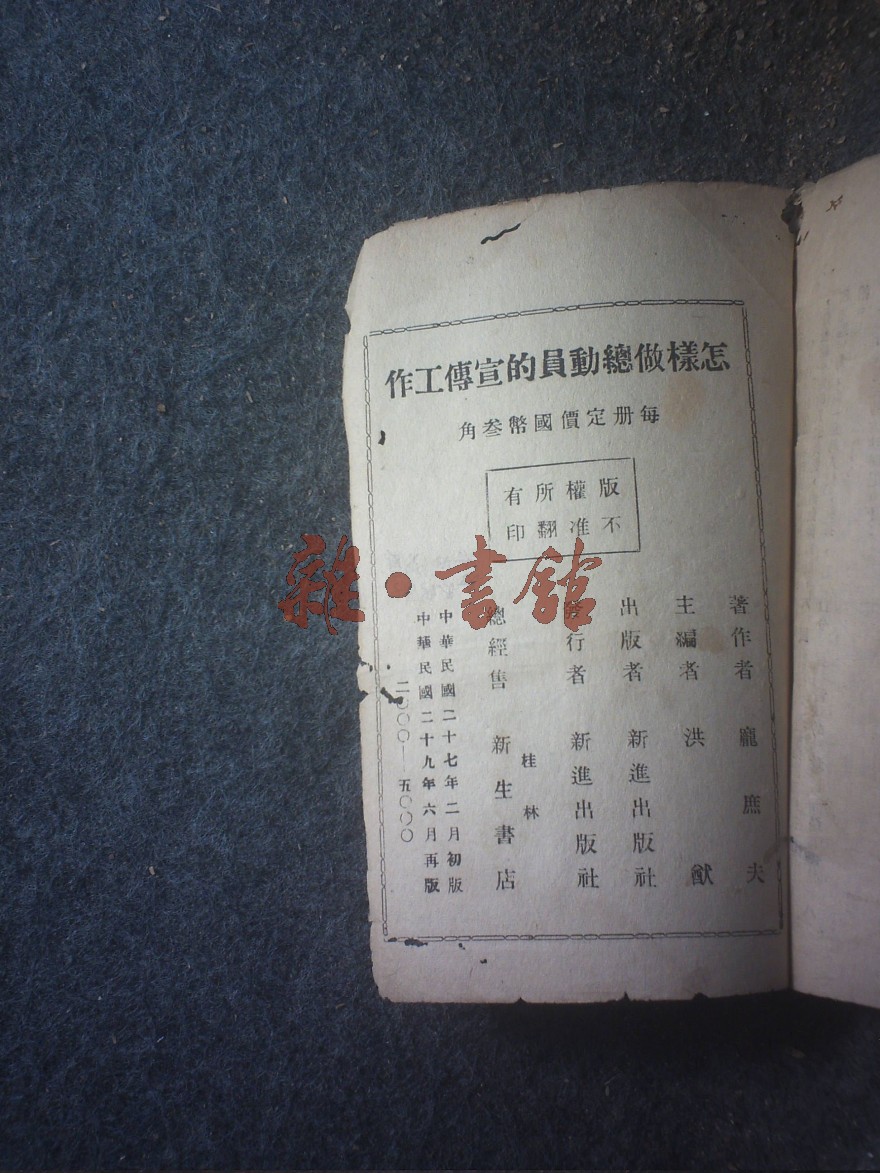 怎樣做總動員的宣傳工作
每册定價國幣叁角
版權所有
不准翻印
著作者 龐庶夫
主編者 洪猷
出版者 新進出版社
發行者 新進出版社
總經售 桂林 新生書店
中華民國二十七年二月初版
中華民國二十九年六月再版
二〇〇〇—五〇〇〇
雜·書館